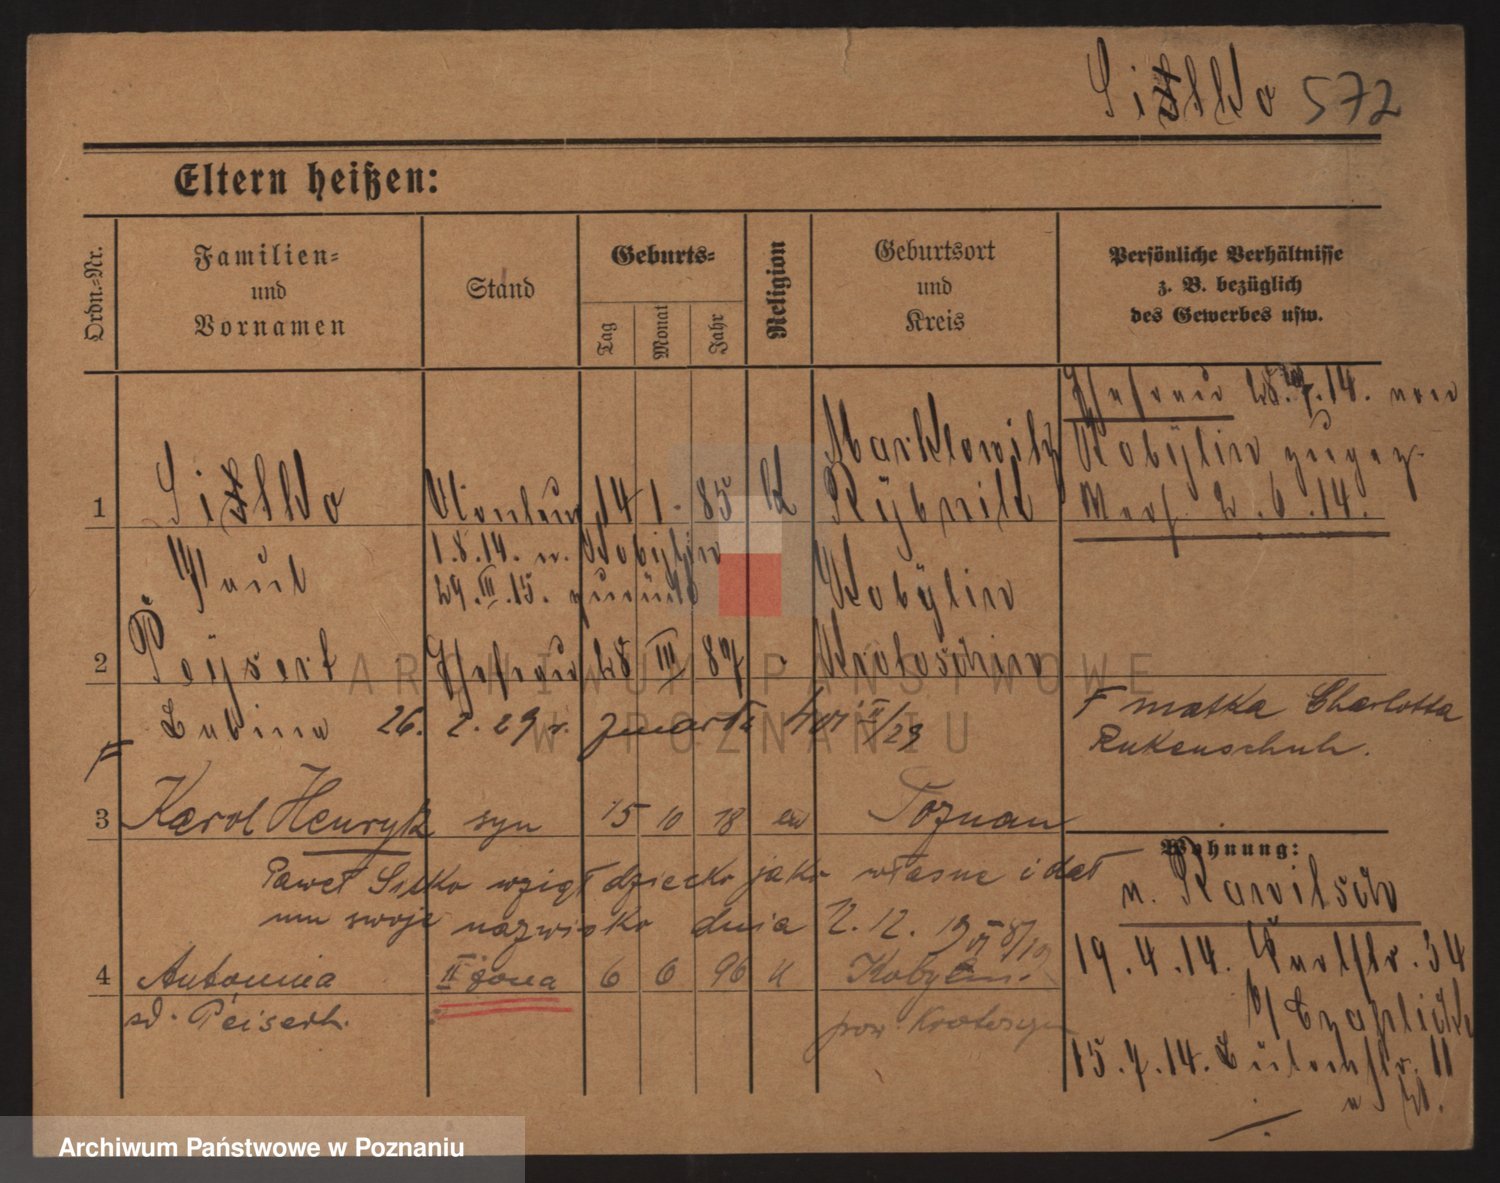 572
Eltern heißen:
Ordn.-Nr.
Familien-
und
Vornamen
Stand
Geburts-
Tag
Monat
Jahr
Religion
Geburtsort
und
Kreis
Persönliche Verhältnisse
z. B. bezüglich
des Gewerbes usw.
Ehefrau 28.7.14. von
Kobylin zugez.
2.6.14.
1 14 1. 85 K Marklowitz
Rybnik
Paul 1.8.14. n. Kobylin
29.III.15. zurück
2 Peysert Ehefrau 28 III 87 Kobylin
Krotoschin
26. 2. 29 r. zmarła
F matka Charlotta
F
3 Karol Henryk syn 15 10 18 ew Poznan
Paweł Sitko wziął dziecko jako własne i dał
mu swoje nazwisko dnia 2.12.19
4 Antonina II żona 6 6 96 K Kobylin
Peisert.
pow. Krotoszyn
Wohnung:
n. Rawitsch
19.4.14. 34
15.7.14. 11
ARCHIWUM PAŃSTWOWE
W POZNANIU
Archiwum Państwowe w Poznaniu